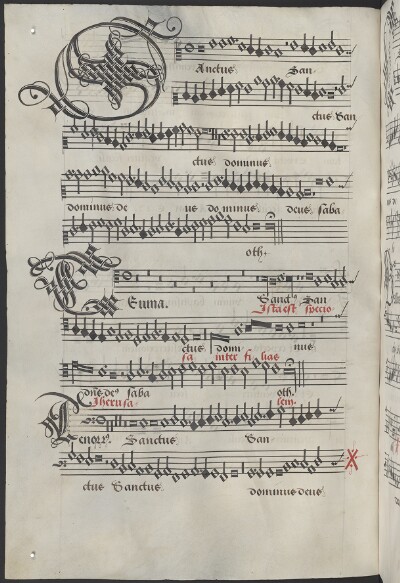 Sanctus San
ctus San
ctus dominus
dominus de us dominus deus saba
oth.
Secunda. Sanctus San
Ista est specio
ctus dominus
sa inter filias
dns deus saba oth.
Iherusa lem.
Tenor. Sanctus San
ctus Sanctus dominus deus